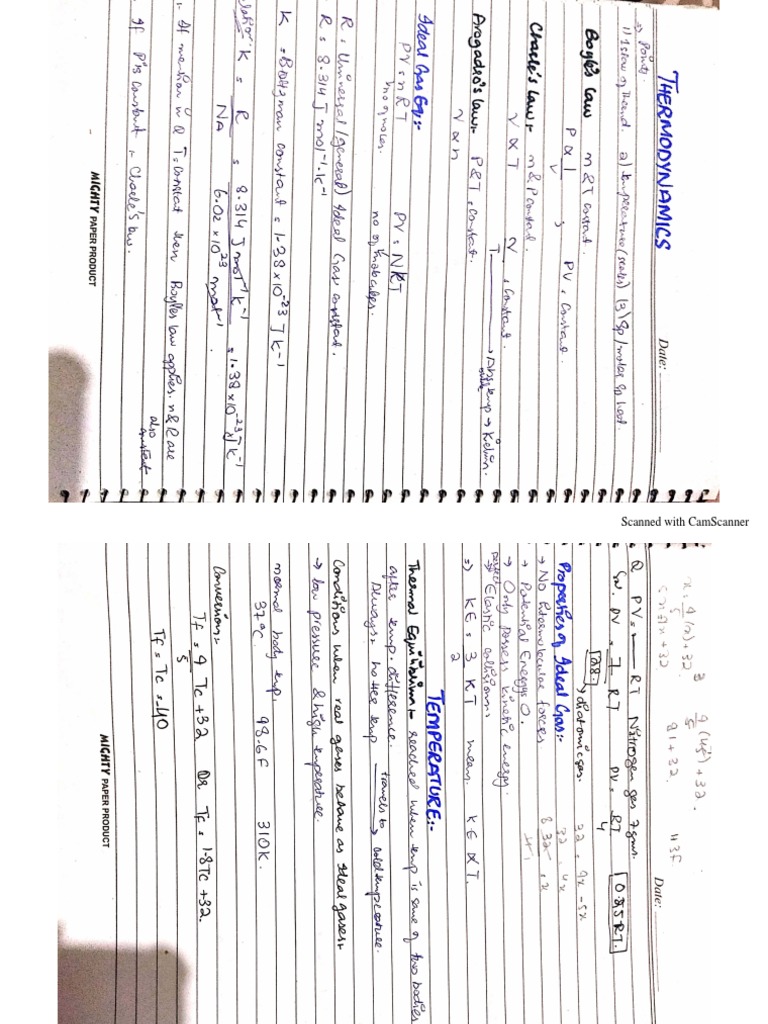 THERMODYNAMICS
Date:
⇒ Points.
1) 1st law of Thermd. 2) temperature (scales) (3) Sp/molar of heat.
Boyle's law m&T constant.
P ∝ 1/V , PV = Constant.
Charle's Law:- m&P constant.
V ∝ T V/T = Constant. → Abs temp → Kelvin.
Avogadro's law:- P&T = Constant.
V ∝ n
Ideal Gas Eq:-
PV = nRT PV = NKT
no of moles. no of molecules.
R = Universal/general) Ideal Gas constant.
R = 8.314 J mol-1.k-1
K = Boltzman constant = 1.38x10-23 J k-1
K = R/NA = 8.314 J mol-1 k-1 / 6.02x10 23 mol-1 = 1.38x10-23 J k-1
If mention in Q T = Constant then Boyles law applies. n&R are also constant
If P is Constant :- Charle's law.
MIGHTY PAPER PRODUCT
Scanned with CamScanner
Date:
+ 32 9/5 (45) + 32.
81 + 32. 113F
Q PV = — RT Nitrogen gas 7gms.
Sol. PV = 7/28 RT PV = RT/4 0.25RT.
→ diatomic gas.
32 = 9x - 5x
32 = 4x
Properties of Ideal Gas:-
→ No Intermolecular forces
→ Potential Energy = 0.
→ Only possess kinetic energy.
→ perfect Elastic collisions.
⇒ KE = 3/2 KT mean. KE ∝ T.
TEMPERATURE:-
Thermal Equilibrium:- reached when temp is same of two bodies
after temp. difference.
Always:- hotter temp travels to → cold temperature.
Conditions when real gases behave as Ideal gases:-
→ low pressure & high temperature.
normal body temp.
37°C. 98.6F 310K.
Conversions:-
Tf = 9/5 Tc + 32 Or Tf = 1.8Tc + 32.
Tf = Tc = -40
MIGHTY PAPER PRODUCT